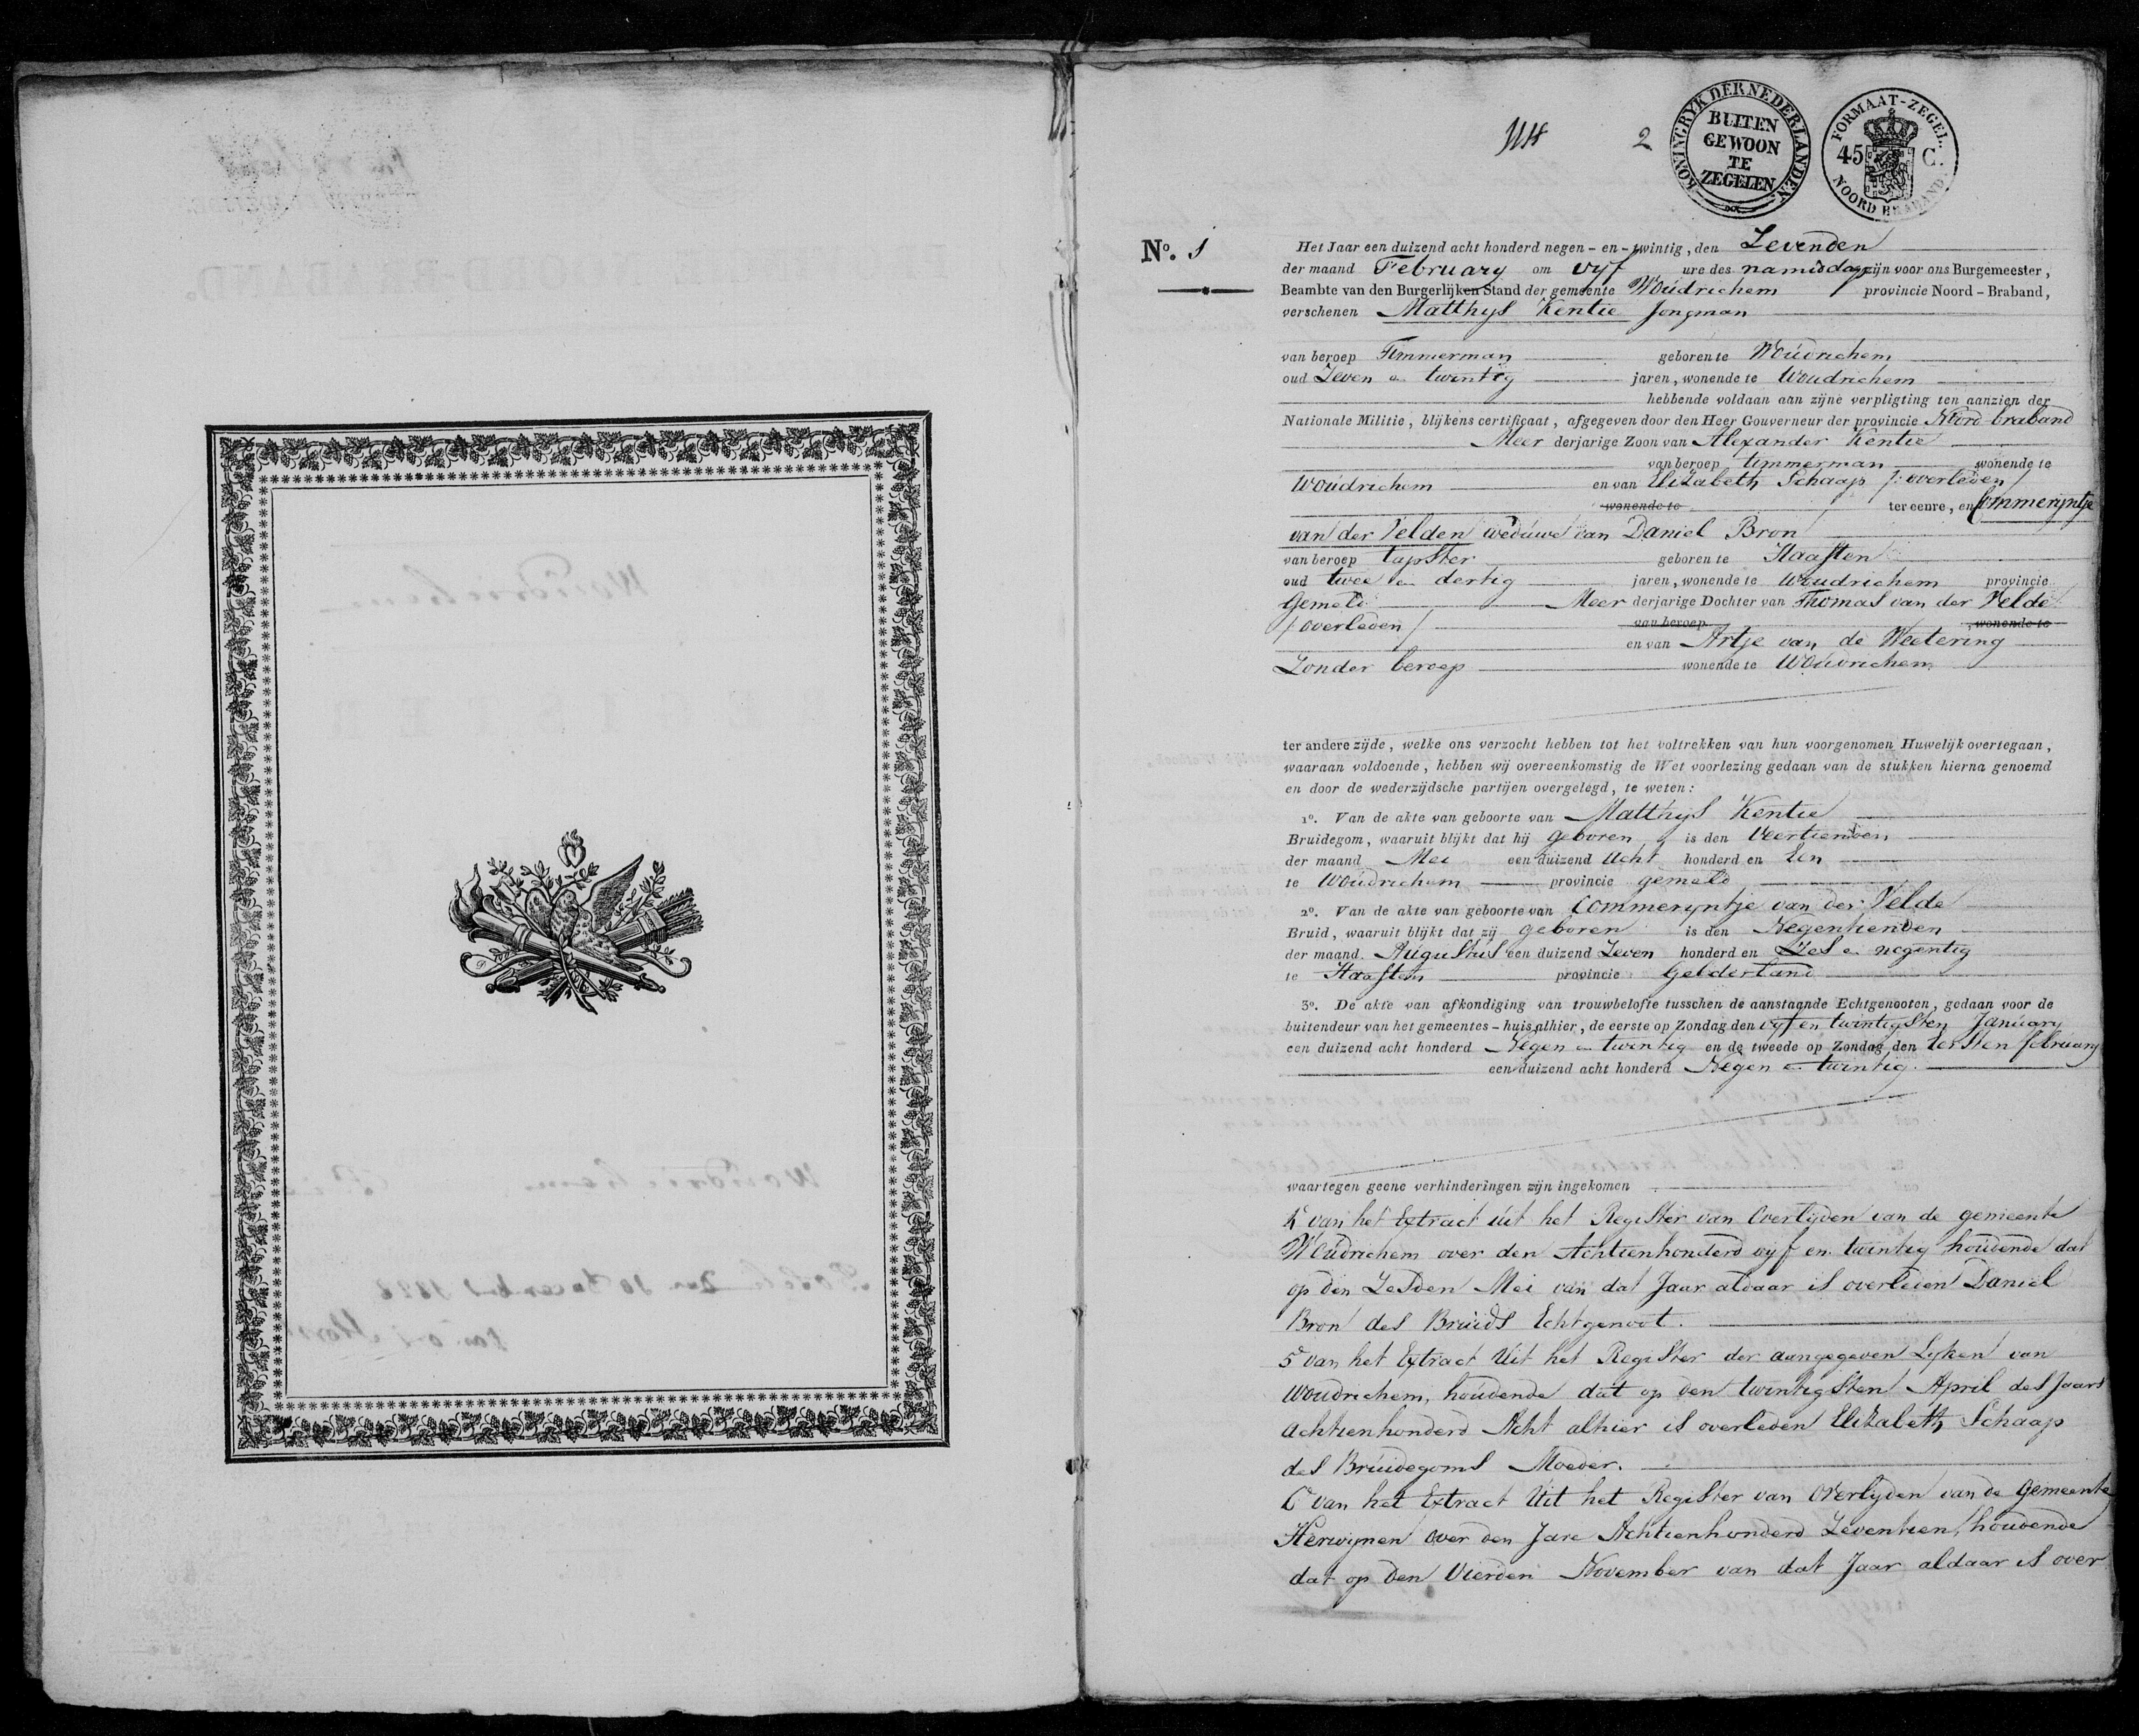 2
KONINGRYK DER NEDERLANDEN
BUITEN
GEWOON
TE
ZEGELEN
FORMAAT-ZEGEL.
45 C.
NOORD BRABAND
No. 1
Het Jaar een duizend acht honderd negen-en-twintig, den Zevenden
der maand February om vyf ure des namiddags zijn voor ons Burgemeester,
Beambte van den Burgerlijken Stand der gemeente Woudrichem provincie Noord-Braband,
verschenen Matthys Kentie Jongman
van beroep Timmerman geboren te Woudrichem
oud Zeven en twintig jaren, wonende te Woudrichem
hebbende voldaan aan zijne verpligting ten aanzien der
Nationale Militie, blijkens certificaat, afgegeven door den Heer Gouverneur der provincie Noord braband
Meer derjarige Zoon van Alexander Kentie
van beroep timmerman wonende te
Woudrichem en van Elizabeth Schaap /: overleden /
wonende te ter eenre, en Commeryntje
van der Velden weduwe van Daniel Bron
van beroep tapster geboren te Haaften
oud twee en dertig jaren, wonende te Woudrichem provincie
Gemeld Meer derjarige Dochter van Thomas van der Velde
/: overleden / van beroep wonende te
en van Artje van de Weetering
Zonder beroep wonende te Woudrichem
ter andere zijde, welke ons verzocht hebben tot het voltrekken van hun voorgenomen Huwelijk overtegaan,
waaraan voldoende, hebben wij overeenkomstig de Wet voorlezing gedaan van de stukken hierna genoemd
en door de wederzijdsche partijen overgelegd, te weten:
1o. Van de akte van geboorte van Matthys Kentie
Bruidegom, waaruit blijkt dat hij geboren is den Veertienden
der maand Mei een duizend Acht honderd en Een
te Woudrichem provincie gemeld
2o. Van de akte van geboorte van Commeryntje van der Velde
Bruid, waaruit blijkt dat zij geboren is den Negentienden
der maand Augustus een duizend Zeven honderd en Zes en negentig
te Haaften provincie Gelderland
3o. De akte van afkondiging van trouwbelofte tusschen de aanstaande Echtgenooten, gedaan voor de
buitendeur van het gemeentes-huis alhier, de eerste op Zondag den vyf en twintigsten January
een duizend acht honderd Negen en twintig en de tweede op Zondag den Eersten february
een duizend acht honderd Negen en twintig.
waartegen geene verhinderingen zijn ingekomen
4o van het Extract uit het Register van Overlyden van de gemeente
Woudrichem over den Achtienhonderd vyf en twintig houdende dat
op den Zesden Mei van dat Jaar aldaar is overleden Daniel
Bron des Bruids Echtgenoot.
5o van het Extract Uit het Register der aangegeven Lyken van
Woudrichem, houdende dat op den twintigsten April des Jaars
Achtienhonderd Acht alhier is overleden Elizabeth Schaap
des Bruidegoms Moeder.
6o van het Extract Uit het Register van Overlyden van de Gemeente
Herwynen over den Jare Achtienhonderd Zeventien, houdende
dat op den Vierden November van dat Jaar aldaar is over